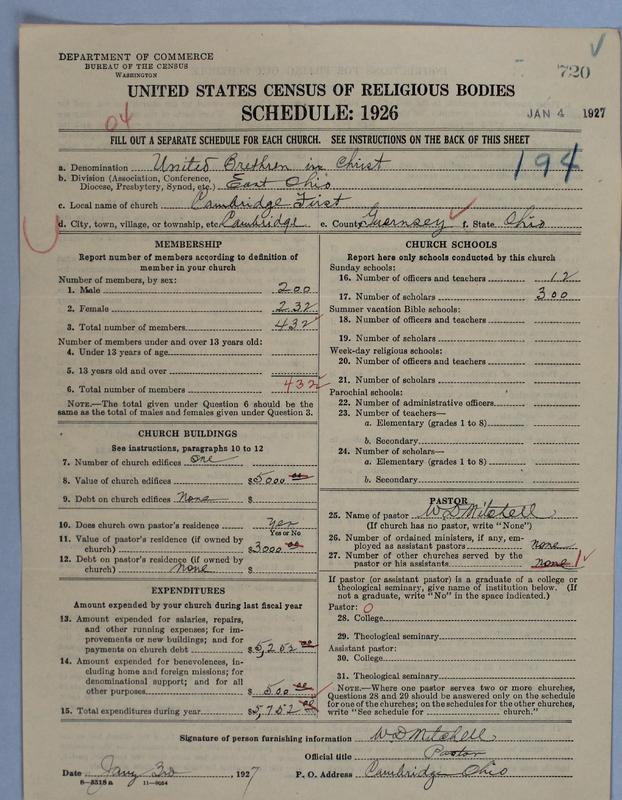 DEPARTMENT OF COMMERCE
BUREAU OF THE CENSUS
WASHINGTON
720
UNITED STATES CENSUS OF RELIGIOUS BODIES
SCHEDULE: 1926
JAN 4 1927
04
FILL OUT A SEPARATE SCHEDULE FOR EACH CHURCH. SEE INSTRUCTIONS ON THE BACK OF THIS SHEET
194
a. Denomination United Brethren in Christ
b. Division (Association, Conference,
Diocese, Presbytery, Synod, etc.) East Ohio
c. Local name of church Cambridge First
d. City, town, village, or township, etc. Cambridge e. County Guernsey f. State Ohio
MEMBERSHIP
Report number of members according to definition of
member in your church
Number of members, by sex:
1. Male 200
2. Female 232
3. Total number of members 432
Number of members under and over 13 years old:
4. Under 13 years of age
5. 13 years old and over
6. Total number of members 432
NOTE.—The total given under Question 6 should be the
same as the total of males and females given under Question 3.
CHURCH BUILDINGS
See instructions, paragraphs 10 to 12
7. Number of church edifices one
8. Value of church edifices $5000 00
9. Debt on church edifices None $
10. Does church own pastor's residence Yes
Yes or No
11. Value of pastor's residence (if owned by
church) $3000 00
12. Debt on pastor's residence (if owned by
church) none $
EXPENDITURES
Amount expended by your church during last fiscal year
13. Amount expended for salaries, repairs,
and other running expenses; for im-
provements or new buildings; and for
payments on church debt $5,252 00
14. Amount expended for benevolences, in-
cluding home and foreign missions; for
denominational support; and for all
other purposes $500 00
15. Total expenditures during year $5,752 00
CHURCH SCHOOLS
Report here only schools conducted by this church
Sunday schools:
16. Number of officers and teachers 12
17. Number of scholars 300
Summer vacation Bible schools:
18. Number of officers and teachers
19. Number of scholars
Week-day religious schools:
20. Number of officers and teachers
21. Number of scholars
Parochial schools:
22. Number of administrative officers
23. Number of teachers—
a. Elementary (grades 1 to 8)
b. Secondary
24. Number of scholars—
a. Elementary (grades 1 to 8)
b. Secondary
PASTOR
25. Name of pastor W D Mitchell
(If church has no pastor, write "None")
26. Number of ordained ministers, if any, em-
ployed as assistant pastors none
27. Number of other churches served by the
pastor or his assistants none 1
If pastor (or assistant pastor) is a graduate of a college or
theological seminary, give name of institution below. (If
not a graduate, write "No" in the space indicated.)
Pastor: 0
28. College
29. Theological seminary
Assistant pastor:
30. College
31. Theological seminary
NOTE.—Where one pastor serves two or more churches,
Questions 28 and 29 should be answered only on the schedule
for one of the churches; on the schedules for the other churches,
write "See schedule for church."
Signature of person furnishing information W D Mitchell
Official title Pastor
Date Jany 3rd, 1927 P. O. Address Cambridge Ohio
8-5518a 11-9054